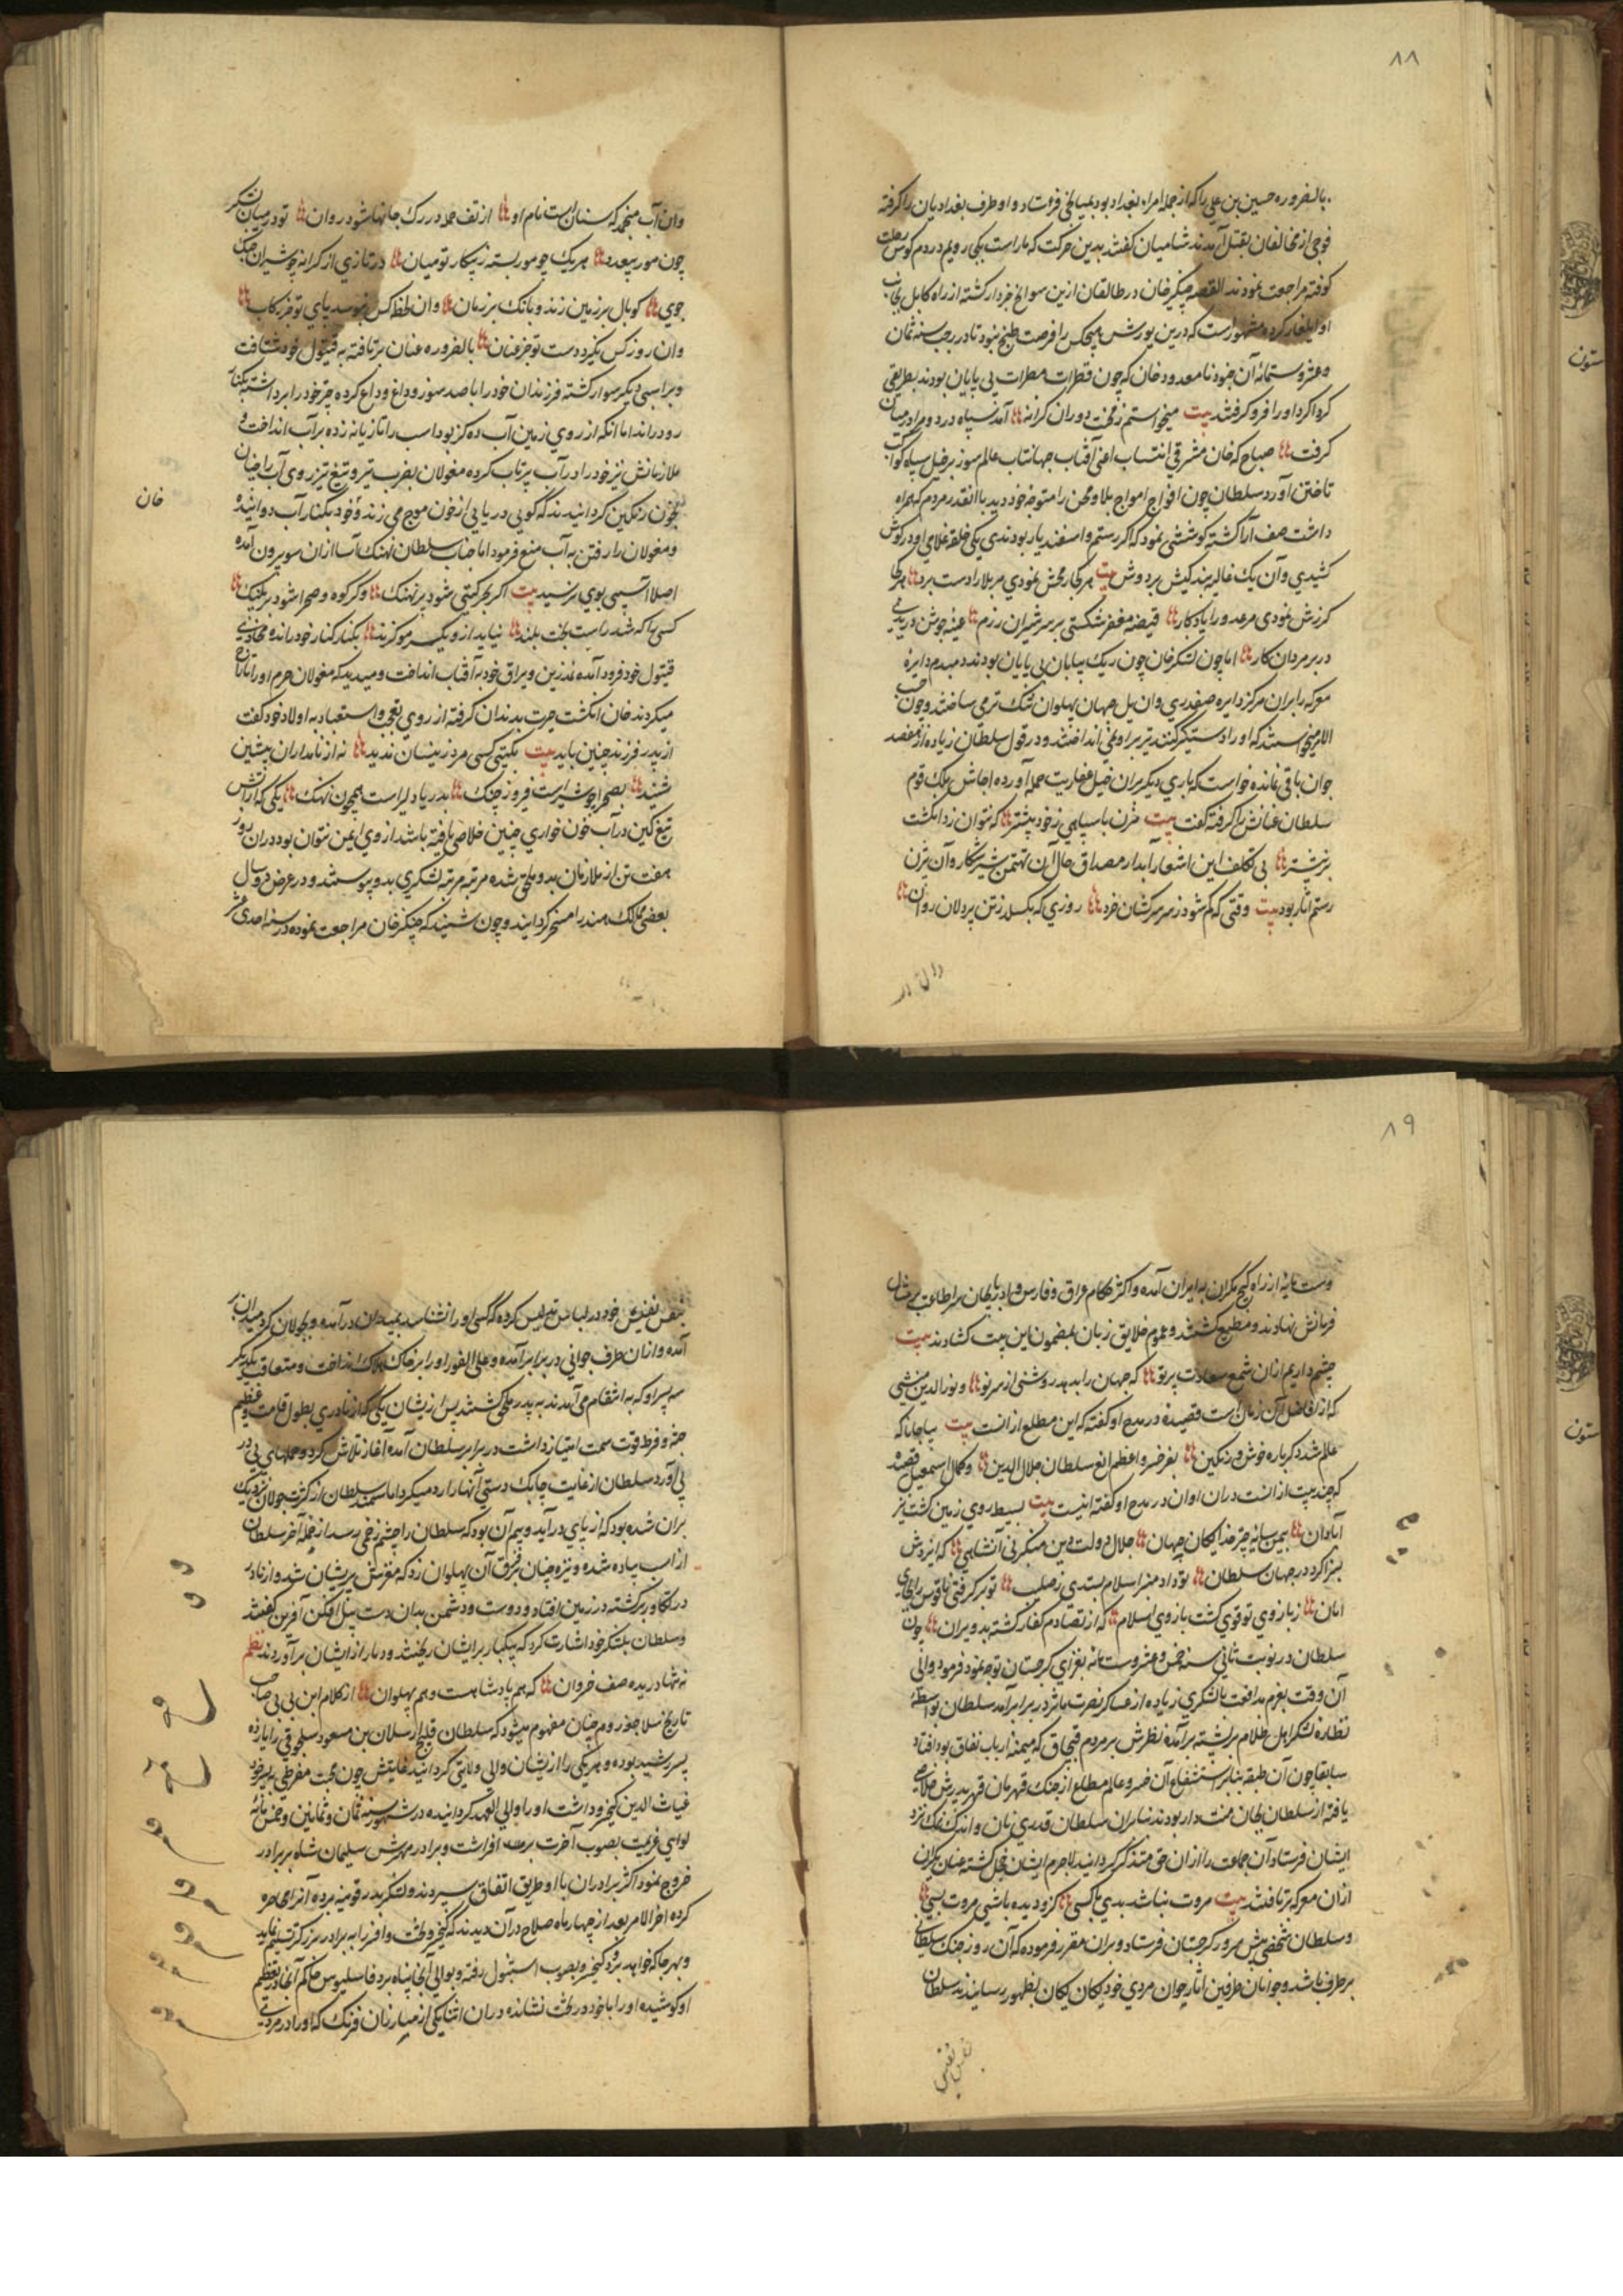 ۸۸
بالضروره حسین بن علی را که از جمله امراء بغداد بود بمیانجی فرستاد و او طرف بغدادیان را گرفته
فوجی از مخالفان بقتل آمدند شامیان گفتند بدین حرکت که ما راست یکی رویم در دم کوس رحلت
کوفته مراجعت نمودند القصه چنگیز خان در طالقان ازین سوانح خبردار گشته از راه کابل بجانب
او ایلغار کرده مشهورست که درین یورش هیچکس را فرصت طبخ نبود تا در رجب سنه ثمان
وعشر وستمائه آن جنود نامعدود خان که چون قطرات مطرات بی پایان بودند بطریقی
گرداگرد او را فرو گرفتند بیت میخواستم ز محنت دوران کرانه آمد سپاه درد و مرا در میان
گرفت صباح که خان مشرقی انتساب اعنی آفتاب جهانتاب عالم سوز بر خیل سپاه کواکب
تاختن آورد سلطان چون افواج امواج بلا و محن را متوجه خود دید با آنقدر مردم که همراه
داشت صف آرا گشته کوششی نمود که اگر رستم و اسفندیار بودندی یکی حلقه غلامی او در گوش
کشیدی و آن یک غالیه بندگیش بر دوش بیت هر کجا رمحش نمودی مر بلا را دست برد هر کجا
گرزش نمودی مر عدو را یادگار قبضه مغفر شکستی بر سر شیران رزم عیبه جوش دریدی
در بر مردان کار اما چون لشکر خان چون ریک بیابان بی پایان بودند دمبدم دایره
معرکه را بر ان مرکز دایره صفدری و ان یل جهان پهلوان تنک تر می ساختند و چون حسب
الامر میخواستند که او را دستگیر کنند تیر بر او نمی انداختند و در قول سلطان زیاده از هفصد
جوان باقی نمانده خواست که باری دیگر بران خیل عفاریت حمله آورده اجاش ملک قوم
سلطان عنانش را گرفته گفت بیت مزن با سپاهی ز خود بیشتر که نتوان زد انگشت
بر نیشتر بی تکلف این اشعار آبدار مصداق حال آن تهمتن شیر شکار و آن پیل تن
رستم آثار بود بیت وقتی که گم شود ز سر سرکشان خرد روزی که بگسلد ز تن پردلان روان
وان آب منجمد که سنان است نام او از تف حمله در رک جانها شود روان تو در میان لشکر
چون مور بیعدد هر یک چو مور بسته ز پیکار تو میان در تازی از کرانه چو شیران جنگ
جوی کوپال بر زمین زند و بانک بر زمان وان لحظه کس نبوسد پای تو جز رکاب
وان روز کس نگیرد دست تو جز عنان بالضروره عنان بر تافته به قیتول خود شتافت
و بر اسبی دیگر سوار گشته فرزندان خود را با صد سوز و داغ وداع کرده چتر خود را برداشته بکنار
رود راند اما آنکه از روی زمین آب ده گز بود اسب را تازیانه زده بر آب انداخت و
ملازمانش نیز خود را در آب پرتاب کرده مغولان بضرب تیر و تیغ تیز روی آب را چنان
بخون رنگین گردانیدند که گویی دریایی از خون موج می زند و خود بکنار آب دوانیده
خان
و مغولان را از رفتن به آب منع فرمود اما جناب سلطان نهنگ آسا ازان سو بیرون آمده
اصلا آسیبی بوی نرسید بیت اگر بحر گیتی شود پر نهنک وگر کوه و صحرا شود پر پلنک
کسی را که شد راست بخت بلند نیاید ازو یک سر مو گزند بکنار کنار خود رانده محاذی
قیتول خود فرود آمده نمد زین و یراق خود به آفتاب انداخت و میدید که مغولان حرم او را تاراج
میکردند خان انگشت حیرت بدندان گرفته از روی تعجب و استعباد به اولاد خود گفت
از پدر فرزند چنین باید بیت بگیتی کسی مرد زینسان ندید نه از نامداران پیشین
شنید بصحرا چو شیر است فیروز جنک بدریا دلیر است همچون نهنک یکی که از آتش
تیغ کین در آب خون خواری چنین خلاصی یافته باشد از وی ایمن نتوان بود در ان روز
هفت تن از ملازمان بدو ملحق شده مرتبه مرتبه لشکری بدو پیوستند و در عرض دو سال
بعضی ممالک هند را مسخر گردانید و چون شنید که چنگیز خان مراجعت نموده در سنه احدی عشر
۸۹
وستمائه از راه کیج مکران به ایران آمده و اکثر حکام عراق و فارس و ادربایجان سر اطاعت بر مثال
فرمانش نهادند و مطیع گشتند و عموم خلایق زبان بمضمون این بیت گشادند بیت
چشم داریم ازان شمع سعادت پرتو که جهان را بدهد روشنی از سر نو و نور الدین منشی
که از افاضل آن زمان است قصیده در مدح او گفته که این مطلع از انست بیت بیا جانا که
عالم شد دگرباره خوش و رنگین بفر خسرو اعظم الغ سلطان جلال الدین و کمال اسمعیل قصیده
که چند بیت از انست دران اوان در مدح او گفته اینست بیت بسیط روی زمین گشت باز
آبادان بیمن سایه چتر خدایگان جهان جلال دولت و دین منکبرنی آن شاهی که ایزدش
بسزا کرد در جهان سلطان تو داد منبر اسلام بستدی ز صلیب تو برگرفتی ناقوس را ز جای
امان ز بازوی تو قوی گشت بازوی اسلام که از تصادم کفار گشته بد ویران چون
سلطان در نوبت ثانی سنه خمس و عشر وستمائه بغزای گرجستان توجه نمود فرمود والی
آن وقت بعزم مدافعت با لشکری زیاده از عساکر نصرت ماثر در برابر آمد سلطان بواسطه
نظاره لشکر اهل ظلام بر پشته برآمده نظرش بر مردم قبچاق که میمنه ارباب نفاق بود افتاد
سابقا چون آن طبقه بنابر استشفاع آن خسرو عالم مطلع از جنک قهرمان قهر پدرش خلاصی
یافته از سلطان بجان منت دار بودند بنابران سلطان قدری نان و اندک نمک نزد
ایشان فرستاد آن جماعت را ازان حق متذکر گردانید لاجرم ایشان خجل گشته عنان یکران
ازان معرکه برتافتند بیت مروت نباشد بدی با کسی کزو دیده باشی مروت بسی
و سلطان شخصی پیش سرور گرجستان فرستاد و بران مقرر فرموده که آن روز جنک سلطانی
بر طرف باشد و جوانان طرفین اثار جوان مردی خود یکان یکان بظهور رسانیدند سلطان
بنفس نفیس
بنفس نفیس خود در لباس تلبیس کرده که کسی او را نشناسد بمیدان در آمده و بجولان گرد میدان بر
آمده و ازان طرف جوانی در برابر آمده و علی الفور او را بر خاک هلاک انداخت و متعاقب یکدیگر
سه پسر او که به انتقام می آمدند به پدر ملحق گشتند پس از ایشان یکی که از نادری بطول قامت و عظیم
جثه و فرط قوت سمت امتیاز داشت در برابر سلطان آمده آغاز تلاش کرد و حملهای پی در
پی آورد سلطان از غایت چابک دستی آنها را رد میکرد اما سمند سلطان از کثرت جولان نزدیک
بران شده بود که از پای در آید و بیم آن بود که سلطان را چشم زخمی رسد از جمله آخر سلطان
از اسب پیاده شده و نیزه چنان بر فرق آن پهلوان زد که مغزش پریشان شد و از پا در
در تکاور برگشته در زمین افتاد و دوست و دشمن بدان دست پیل افکن آفرین گفتند
و سلطان بلشکر خود اشارت کرد که بیکبار بر ایشان ریختند و دمار از ایشان برآوردند نظم
نه تنها دریده صف خسروان که هم پادشاهست و هم پهلوان از کلام ابن بی بی صاحب
تاریخ سلاجقه روم چنان مفهوم میشود که سلطان قلیج ارسلان بن مسعود سلجوقی را یازده
پسر رشید بوده و هر یکی را از ایشان والی ولایتی گردانید غایتش چون محبت مفرطی به پسر خود
غیاث الدین کیخسرو داشت او را والی العهد گردانیده در شهور سنه ثمان و ثمانین و خمسمائه
لوای عزیمت بصوب آخرت برافراشت و برادر مهترش سلیمان شاه بر برادر
خروج نمود اکثر برادران با او طریق اتفاق سپردند و لشکر بدر قونیه برده آنرا محاصره
کرده اخر الامر بعد از چهار ماه صلاح در آن دیدند که کیخسرو تخت و افسر را به برادر بزرگتر تسلیم نماید
و بهر جا که خواهد برود کیخسرو بصوب استنبول رفته و بوالی آنجا پناه برد فاسلیوس حاکم آنجا در تعظیم
او کوشیده او را با خود در تخت نشانده دران اثنا یکی از مبارزان فرنک که او را در مردی
ستون
ستون